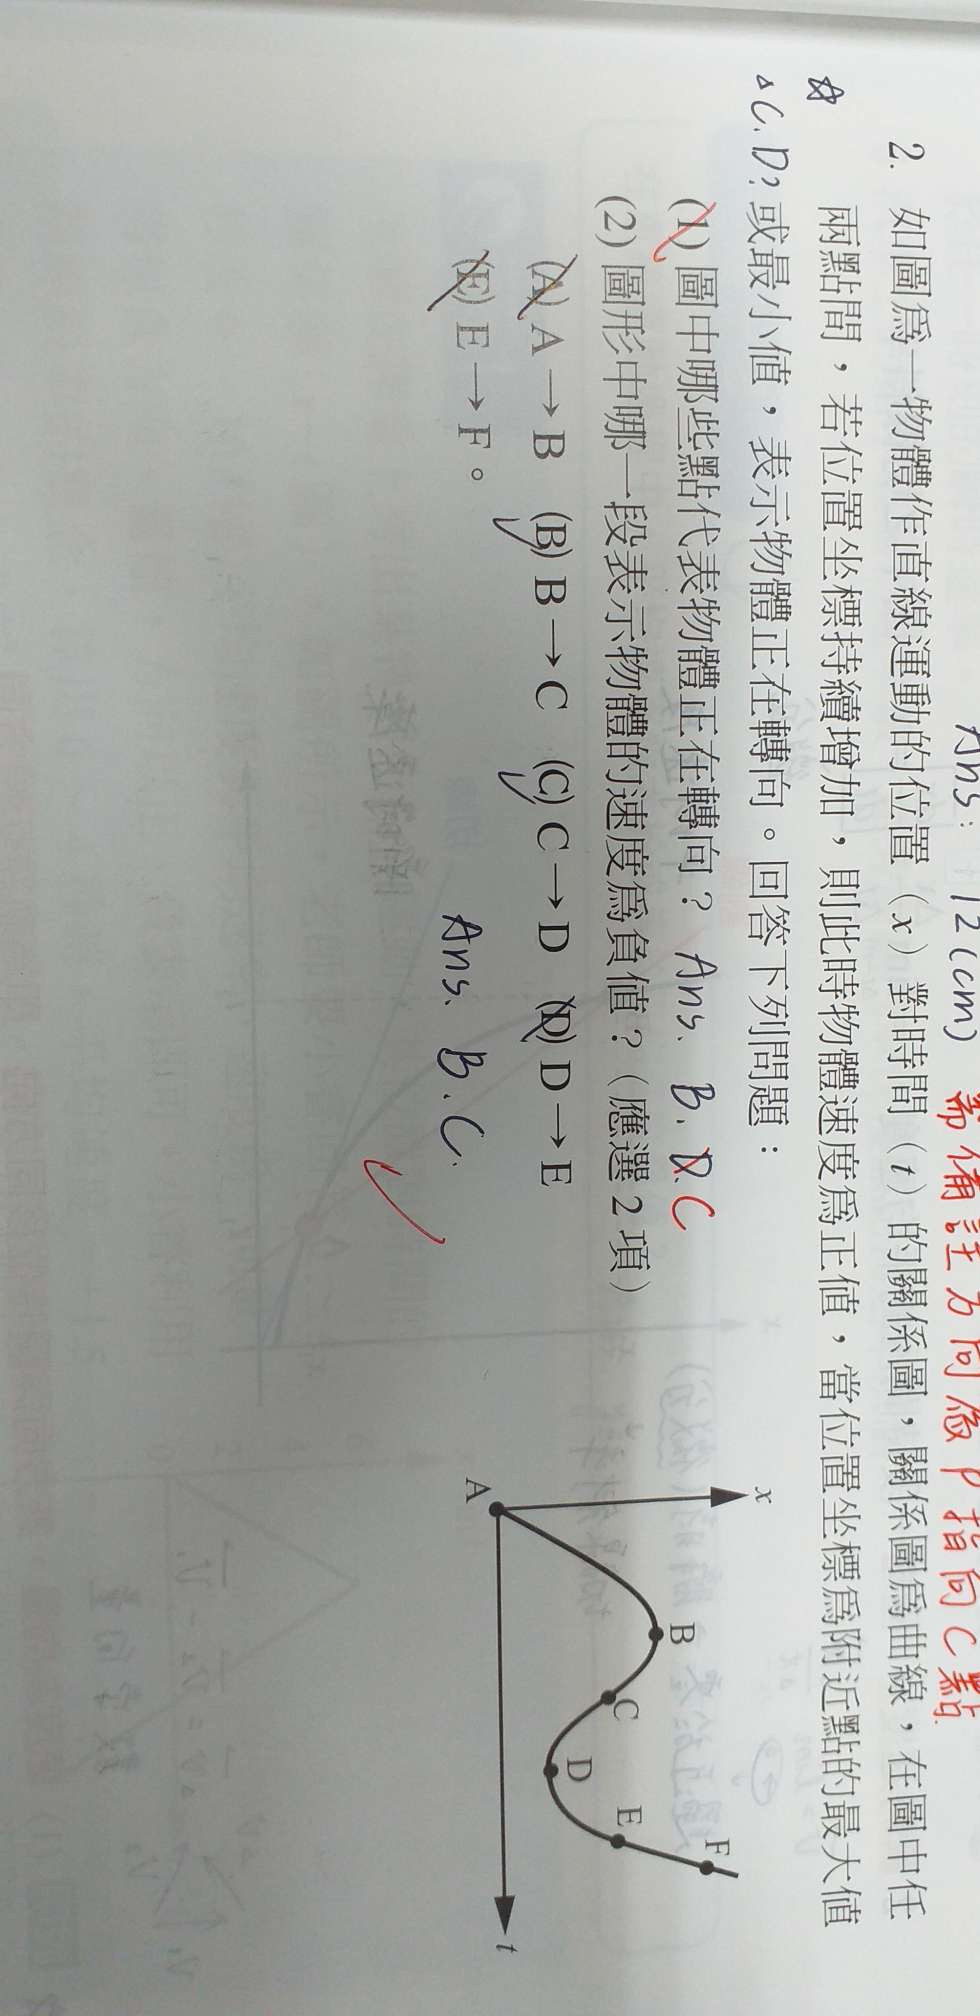 Ans: 12(cm) 需備註方向為P指向C點
2. 如圖為一物體作直線運動的位置(x)對時間(t)的關係圖,關係圖為曲線,在圖中任
☆ 兩點間,若位置坐標持續增加,則此時物體速度為正值,當位置坐標為附近點的最大值
△C.D? 或最小值,表示物體正在轉向。回答下列問題:
(1) 圖中哪些點代表物體正在轉向? Ans. B. D. C
(2) 圖形中哪一段表示物體的速度為負值?(應選2項)
(A) A→B (B) B→C (C) C→D (D) D→E
(E) E→F。
Ans. B. C.
x
B
F
C
E
D
A
t